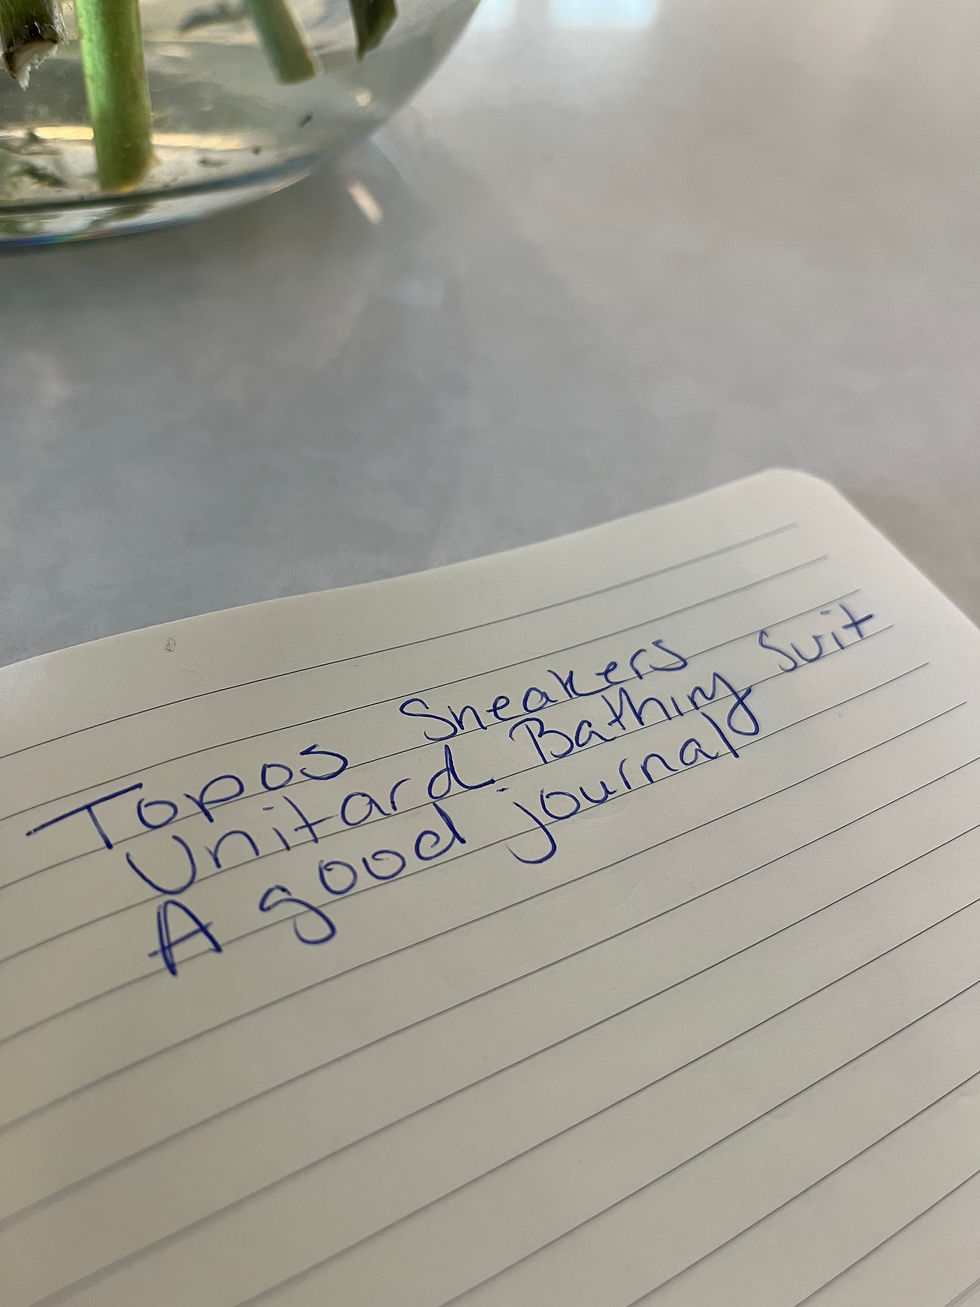 Topos Sneakers
Unitard Bathing Suit
A good journal